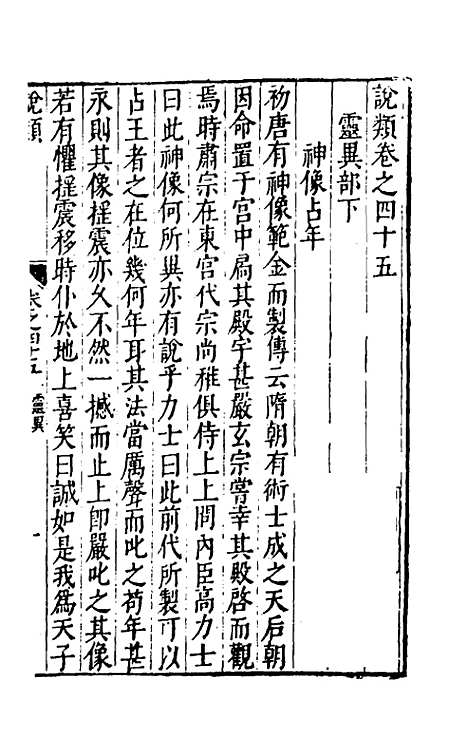 說類卷之四十五
靈異部下
神像占年
初唐有神像範金而製傳云隋朝有術士成之天后朝
因命置于宮中扃其殿宇甚嚴玄宗嘗幸其殿啓而觀
焉時肅宗在東宮代宗尚稚俱侍上上問內臣高力士
曰此神像何所異亦有說乎力士曰此前代所製可以
占王者之在位幾何年耳其法當厲聲而叱之苟年甚
永則其像摇震亦久不然一撼而止上卽嚴叱之其像
若有懼摇震移時仆於地上喜笑曰誠如是我爲天子
說類
卷之四十五
靈異
一